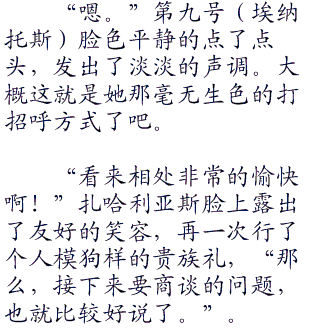 “嗯。”第九号（埃纳
托斯）脸色平静的点了点
头，发出了淡淡的声调。大
概这就是她那毫无生色的打
招呼方式了吧。
“看来相处非常的愉快
啊！”扎哈利亚斯脸上露出
了友好的笑容，再一次行了
个人模狗样的贵族礼，“那
么，接下来要商谈的问题，
也就比较好说了。”。